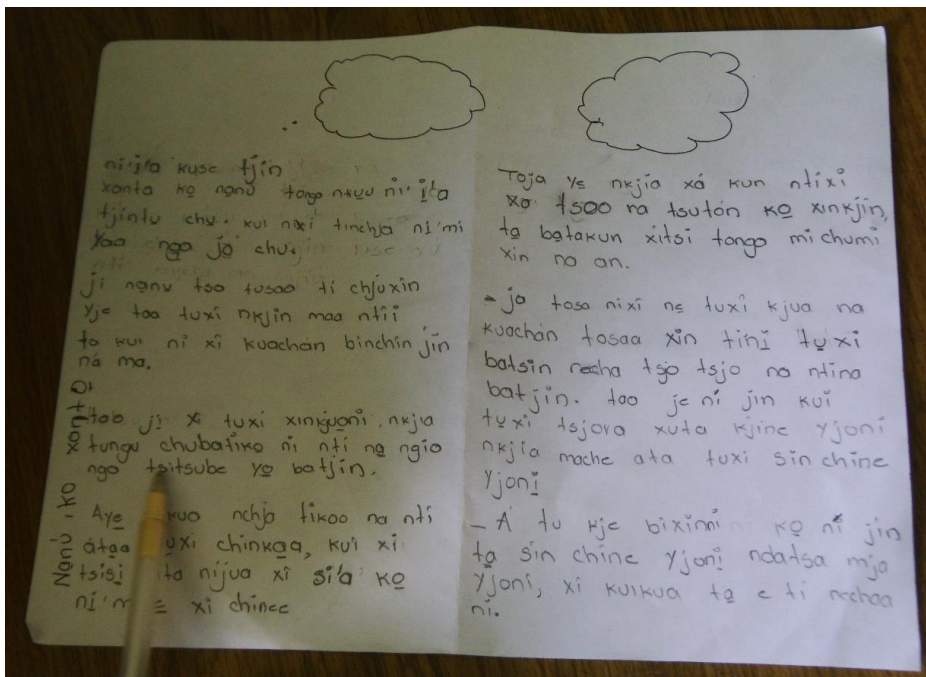 ni'jta kuse tjin
xonta ko nanu tongo nkuu ni' ita
tjintu chu. kui nixi tinchja ni'mi
Yaa nga jo chu.
ji nanu tso tusoo ti chjuxin
Yje too tuxi nkjin maa ntii
to kui ni xi kuachan binchin jin
ná ma.
too ji xi tuxi xinkjuoni. nkjia
tungu chubatiko ni nti na ngio
ngo tsitsube yo batjin.
Aye kuo nchja tikoo na nti
átaa uxi chinkaa, kui xi
tsisi ta nijua xi si'a ko
ni'm xi chinee
Nanu ko xonto
Toja ye nkjia xá kun ntixi
xo tsoo na tsutón ko xinkjin,
ta batakun xitsi tongo mi chumi
xin no an.
- ja tosa nixi ne tuxi kjua na
kuachán tosaa xin tini tu xi
batsin recha tsjo tsjo no ntino
batjin. too je ni jin kui
tuxi tsjora xuta kjine yjoni
nkjia mache ata tuxi sin chine
yjoni
- A tu kje bixinni ko ni jin
ta sin chine yjoni ndatsa mjo
yjoni, xi kuikua ta e ti nechaa
ni.